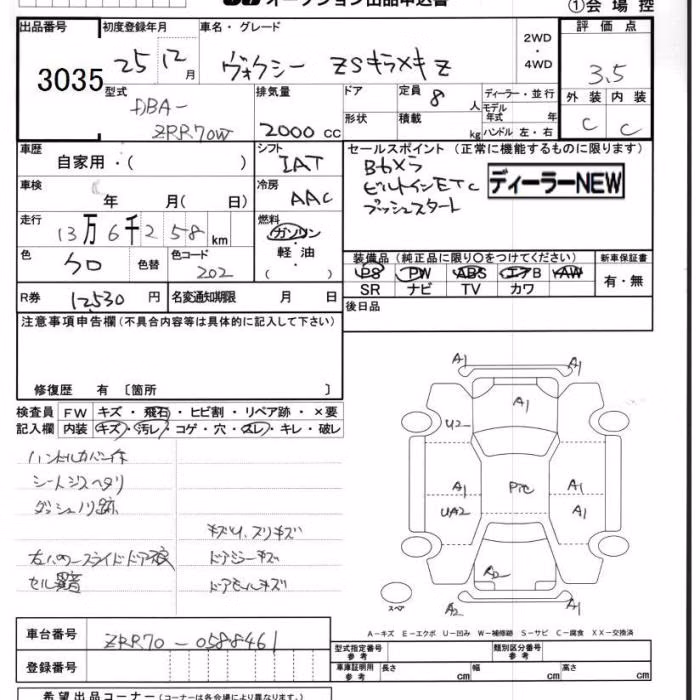 オークション出品申込書 ①会場控
出品番号 初度登録年月 車名・グレード 評価点
3035 25 12月 ヴォクシー ZSキラメキZ 2WD・4WD 3.5
型式 排気量 ドア 定員 8人 ディーラー・並行 外装 内装
DBA- 形状 積載 kg モデル年式 年 C C
ZRR70W 2000cc ハンドル 左・右
車歴 シフト セールスポイント (正常に機能するものに限ります)
自家用・( ) IAT
車検 冷房 ビルトインETC ディーラーNEW
年 月( 日) AAC プッシュスタート
走行 燃料
13万6千258km ガソリン・軽油 ( )
色 クロ 色替 色コード 202 装備品 (純正品に限り〇をつけてください) 新車保証書
PS PW ABS エアB AW 有・無
SR ナビ TV カワ
R券 12530円 名変通知期限 月 日 後日品
注意事項申告欄(不具合内容等は具体的に記入して下さい)
修復歴 有 〔箇所 〕
検査員 FW キズ・飛石・ヒビ割・リペア跡・×要
記入欄 内装 キズ・汚レ・コゲ・穴・スレ・キレ・破レ
ハンドルカバー付
シートシミヘタリ
ダッシュノリ跡
キズリ、スリキズ
ドアジーキズ
ドアモールキズ
A1 A1
A1
U2
A1 A1
PiC
UA2 A1
A2
A2 A1
スペア
A-キズ E-エクボ U-凹み W-補修跡 S-サビ C-腐食 XX-交換済
車台番号 ZRR70-0588461
型式指定番号 参考 類別区分番号 参考
登録番号 車庫証明用 参考 長さ cm 幅 cm 高さ cm
希望出品コーナー(コーナーは各会場により異なります。)